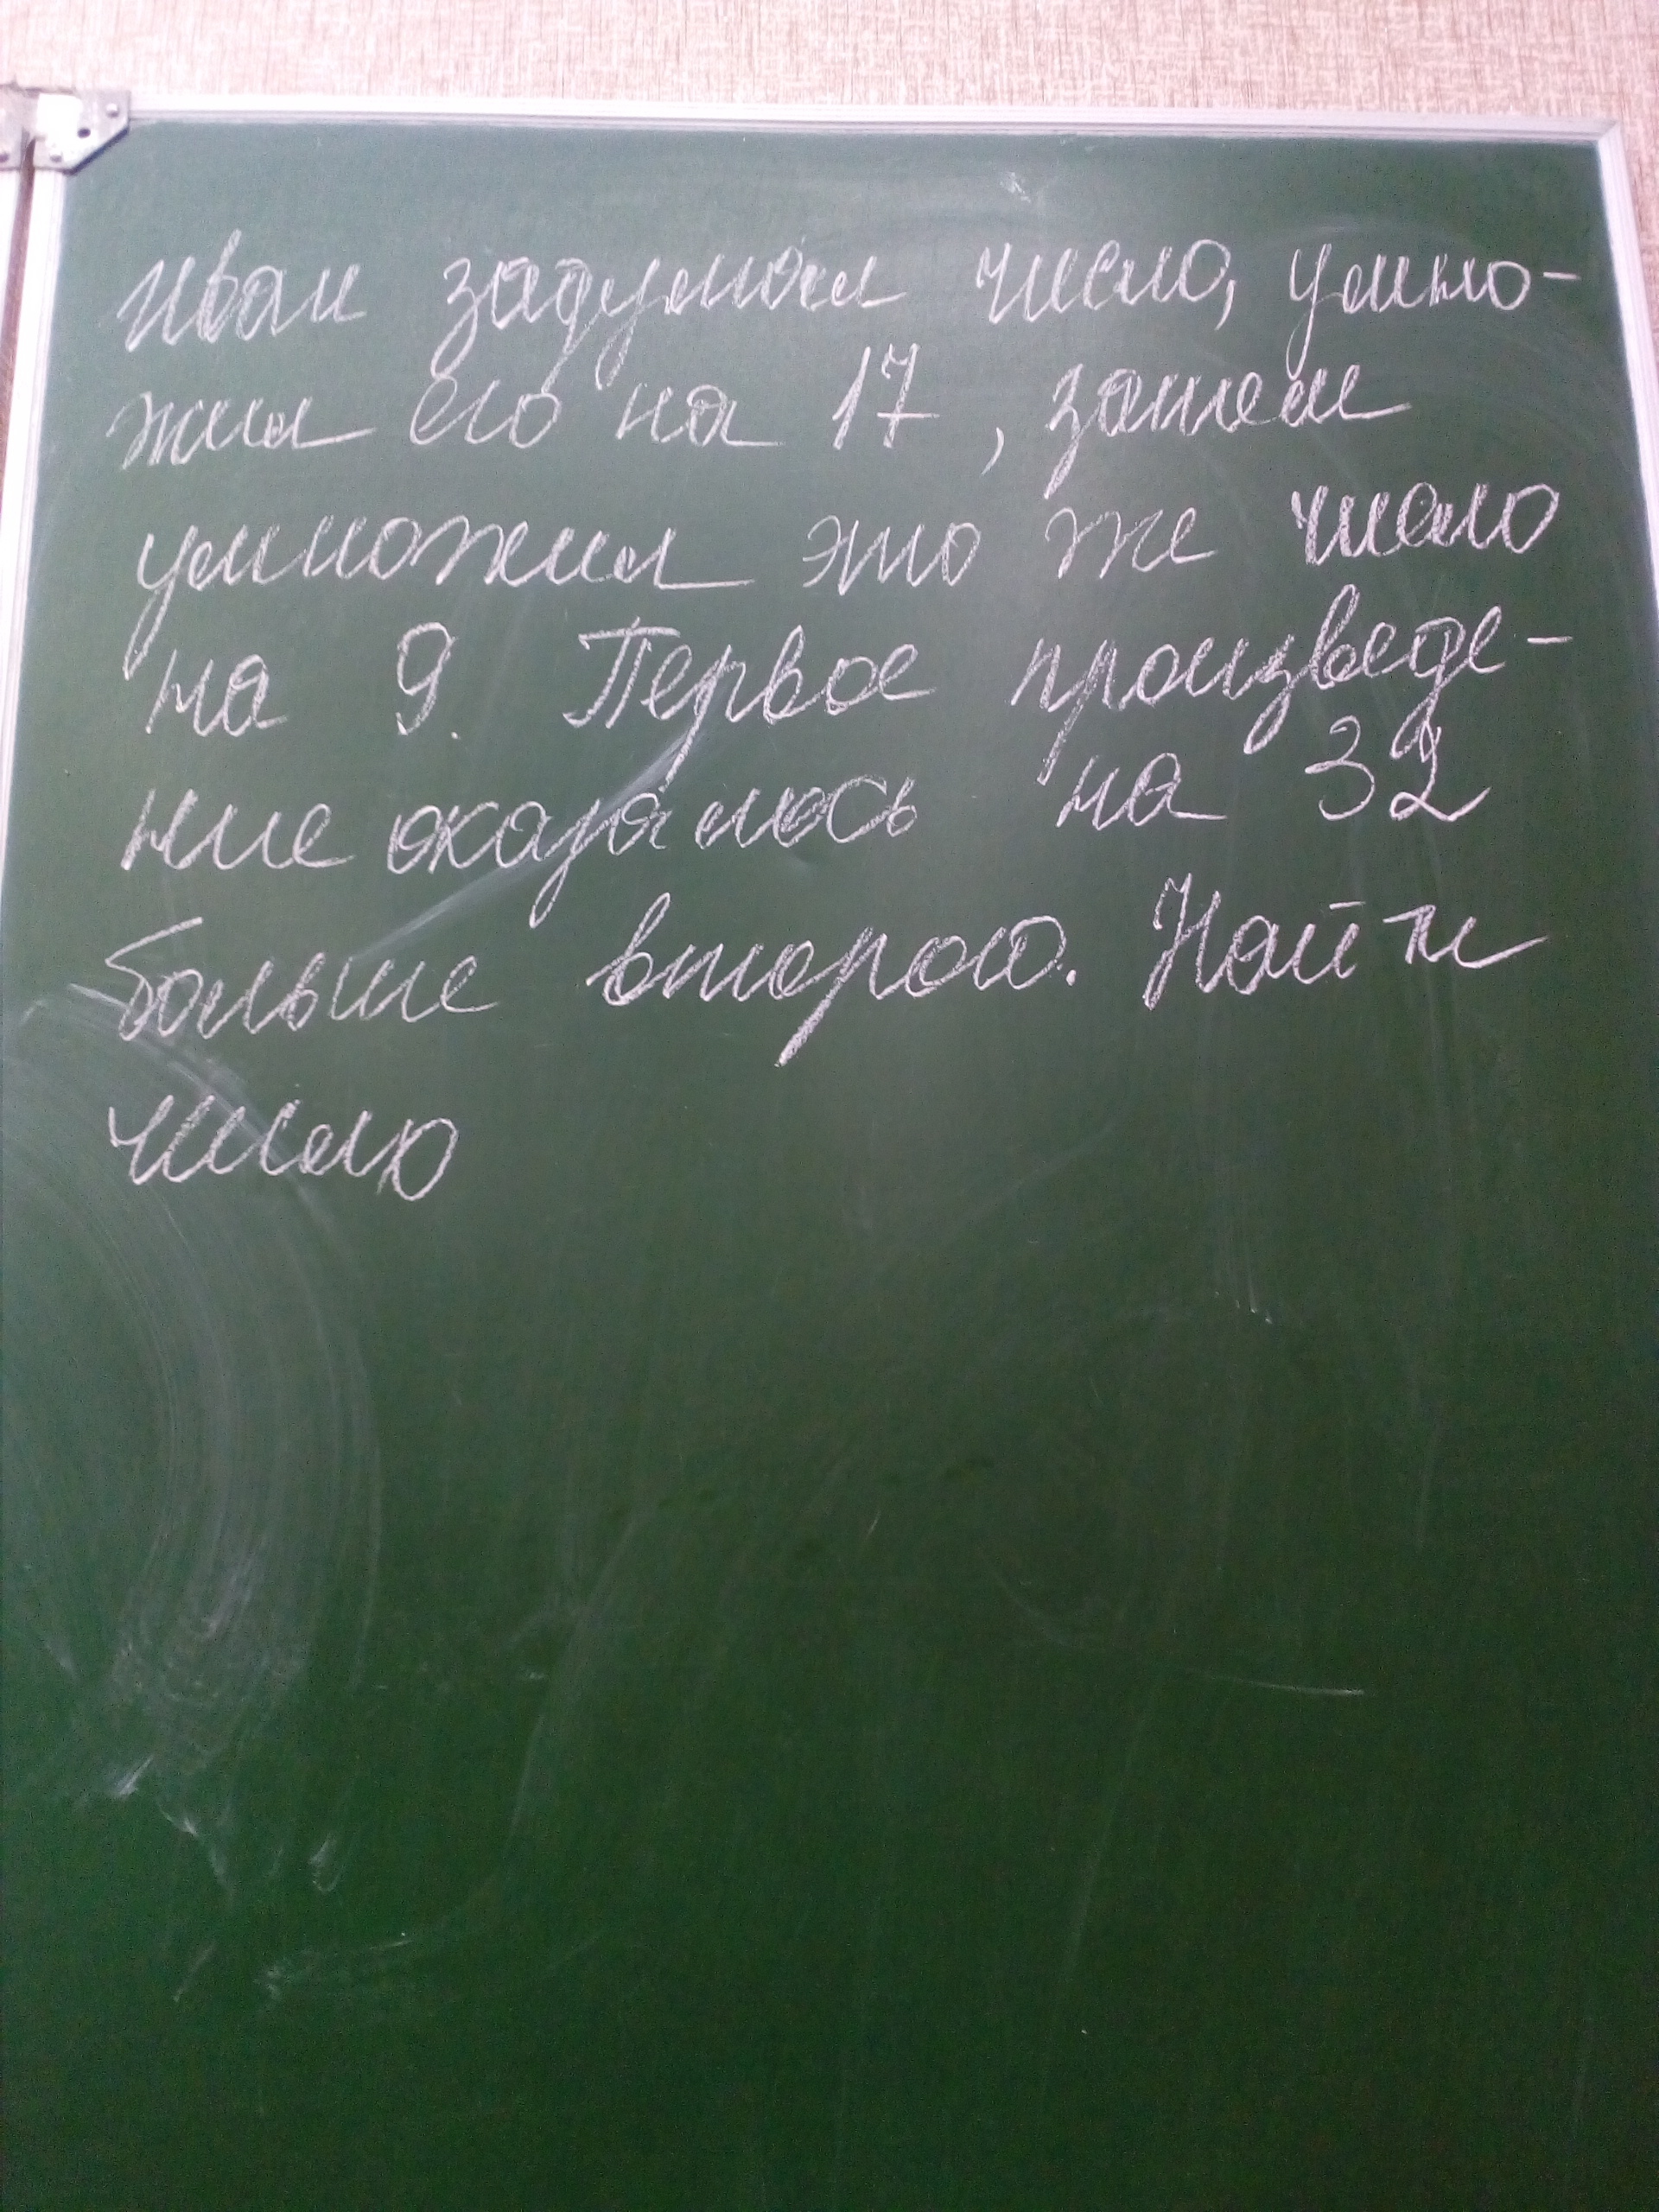 Иван задумал число, умно-
жил его на 17, затем
умножил это же число
на 9. Первое произведе-
ние оказалось на 32
больше второго. Найти
число